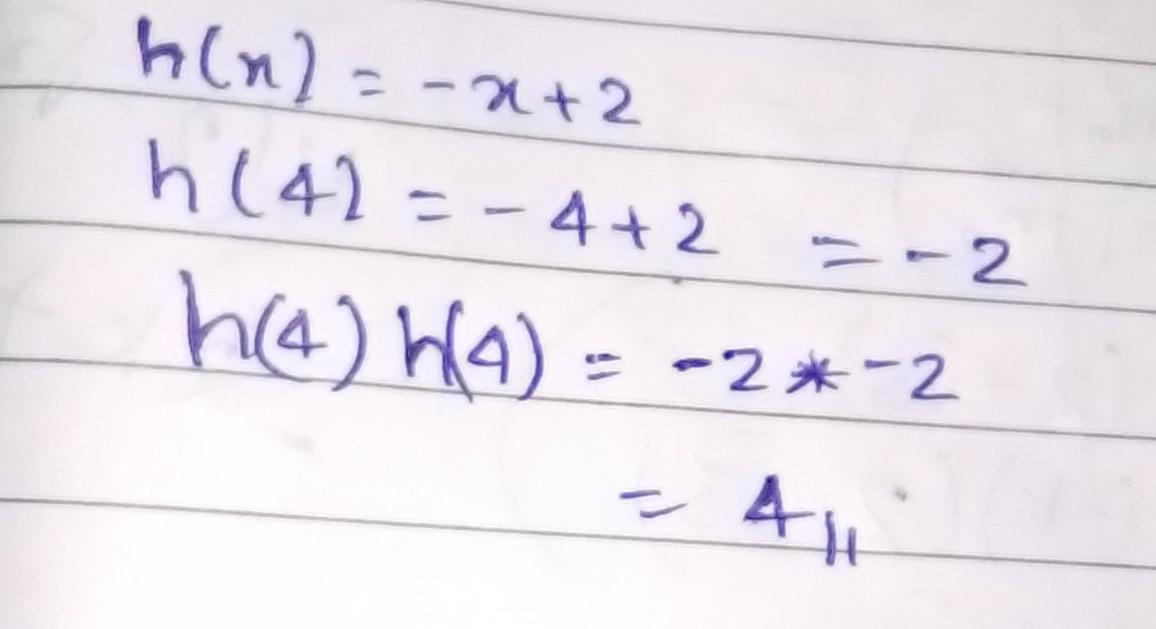 h(x) = -x+2
h(4) = -4+2 = -2
h(4) h(4) = -2 * -2
= 4 //